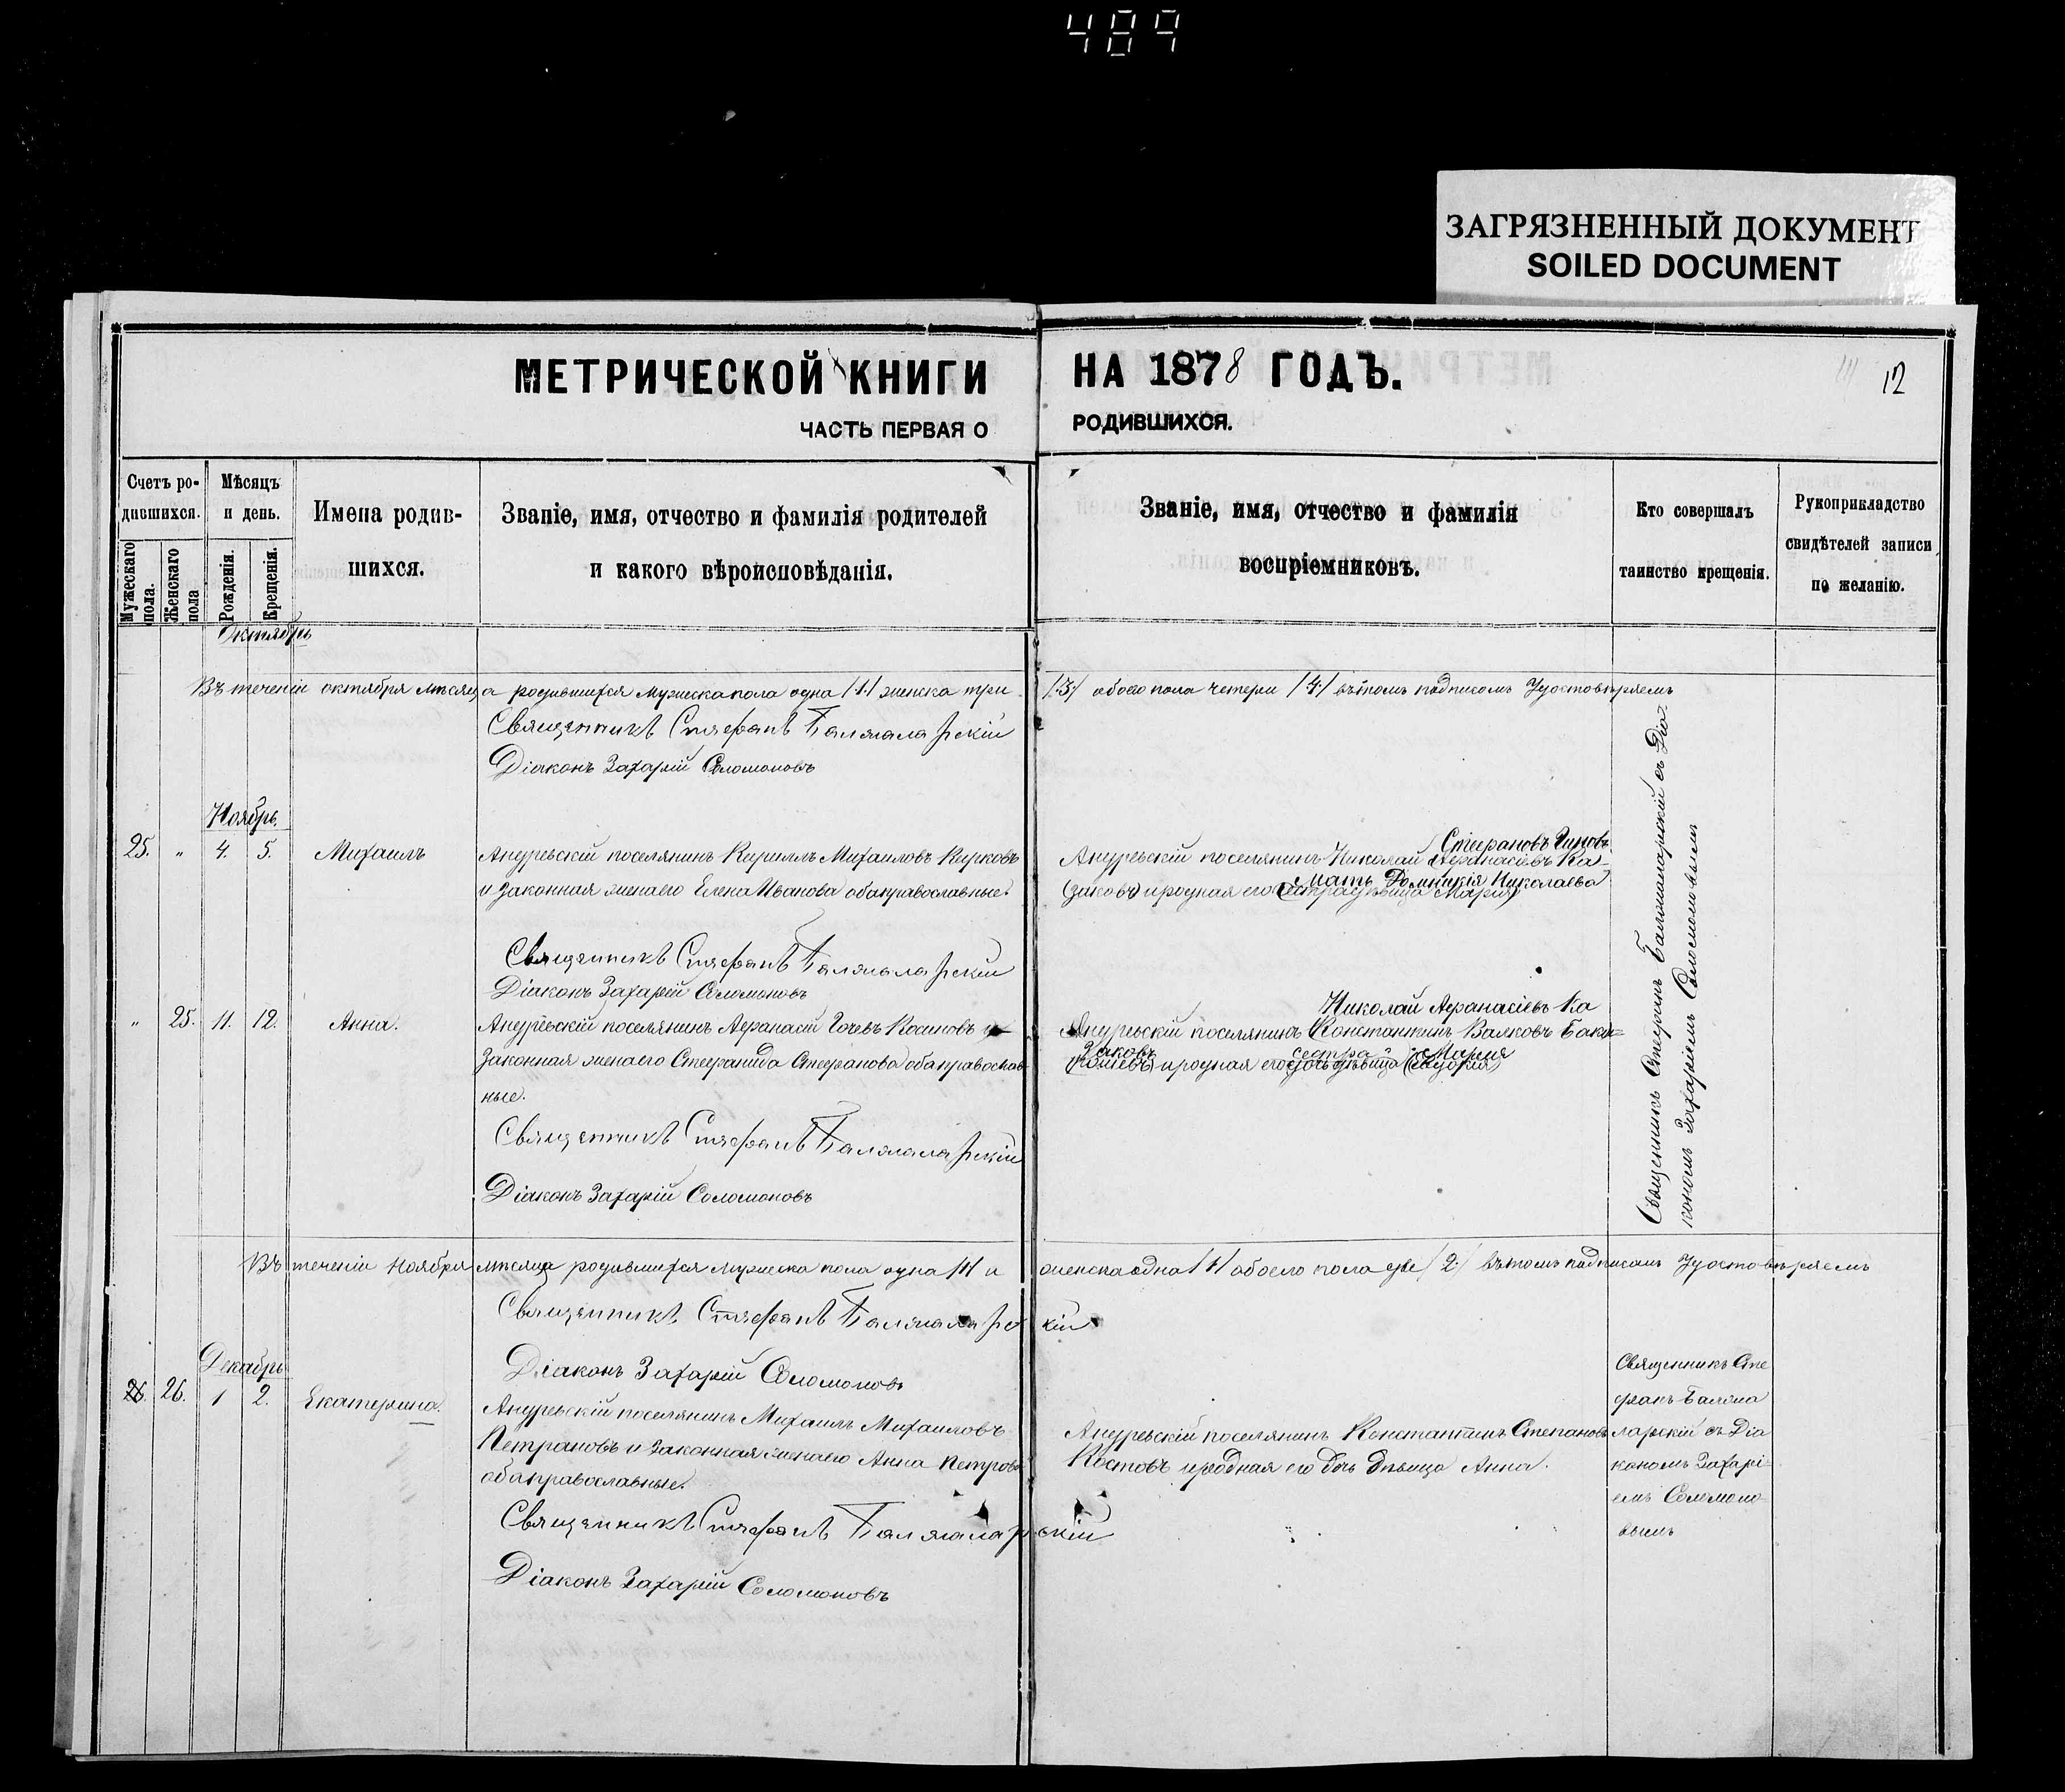 489
ЗАГРЯЗНЕННЫЙ ДОКУМЕНТ
SOILED DOCUMENT
МЕТРИЧЕСКОЙ КНИГИ НА 1878 ГОДЪ.
12
ЧАСТЬ ПЕРВАЯ О РОДИВШИХСЯ.
Счетъ ро-
дившихся.
Мужескаго пола.
Женскаго пола
Мѣсяцъ
и день.
Рожденія.
Крещенія.
Имена родив-
шихся.
Званіе, имя, отчество и фамилія родителей
и какого вѣроисповѣданія.
Званіе, имя, отчество и фамилія
воспріемниковъ.
Кто совершалъ
таинство крещенія.
Рукоприкладство
свидѣтелей записи
по желанію.
Октябрь
Въ теченіи октября мѣсяца родившихся мужеска пола одна /1/ женска три /3/ обоего пола четери /4/ вѣтомъ подписомъ Удостовѣряемъ
Священникъ Стефанъ Баламаларскій
Діаконъ Захарій Соломоновъ
Ноябрь.
25. " 4. 5. Михаилъ
Андуревскій поселянинъ Кириллъ Михаиловъ Курковъ
и законная женаего Елена Иванова обаправославные.
Стефановъ
Андуревскій поселянинъ Николай Афанасіевъ Ка-
мать Домникія Николаева
(заковъ) и родная его (сестра дѣвица Марія)
Священникъ Стефанъ Баламаларскій съ Діа-
кономъ Захаріемъ Соломоновымъ
Священникъ Стефанъ Баламаларскій
Діаконъ Захарій Соломоновъ
" 25. 11. 12. Анна.
Андуревскій поселянинъ Афанасій Гочевъ Косиновъ и
законная женаего Стефанида Стефанова обаправослав-
ные.
Николай Афанасіевъ Ка
Андуревскій поселянинъ (Константинъ Валковъ Бака=
заковъ сестра Марія
и родная его (дочь дѣвица
Священникъ Стефанъ Баламаларскій
Діаконъ Захарій Соломоновъ
Въ теченіи Ноября мѣсяца родившихся мужеска пола одна /1/ и женска одна /1/ обоего пола две /2/ вѣтомъ подписомъ Удостовѣряемъ
Священникъ Стефанъ Баламаларскій
Діаконъ Захарій Соломоновъ
Декабрь
26. 26. 1 2. Екатерина.
Андуревскій поселянинъ Михаилъ Михаиловъ
Петрановъ и законная женаего Анна Петрова
обаправославные.
Андуревскій поселянинъ Константинъ Степановъ
Костовъ и родная его дочь дѣвица Анна.
Священникъ Сте
фанъ Балама
ларскій съ Діа
кономъ Захарі
емъ Соломоно
вымъ
Священникъ Стефанъ Баламаларскій
Діаконъ Захарій Соломоновъ